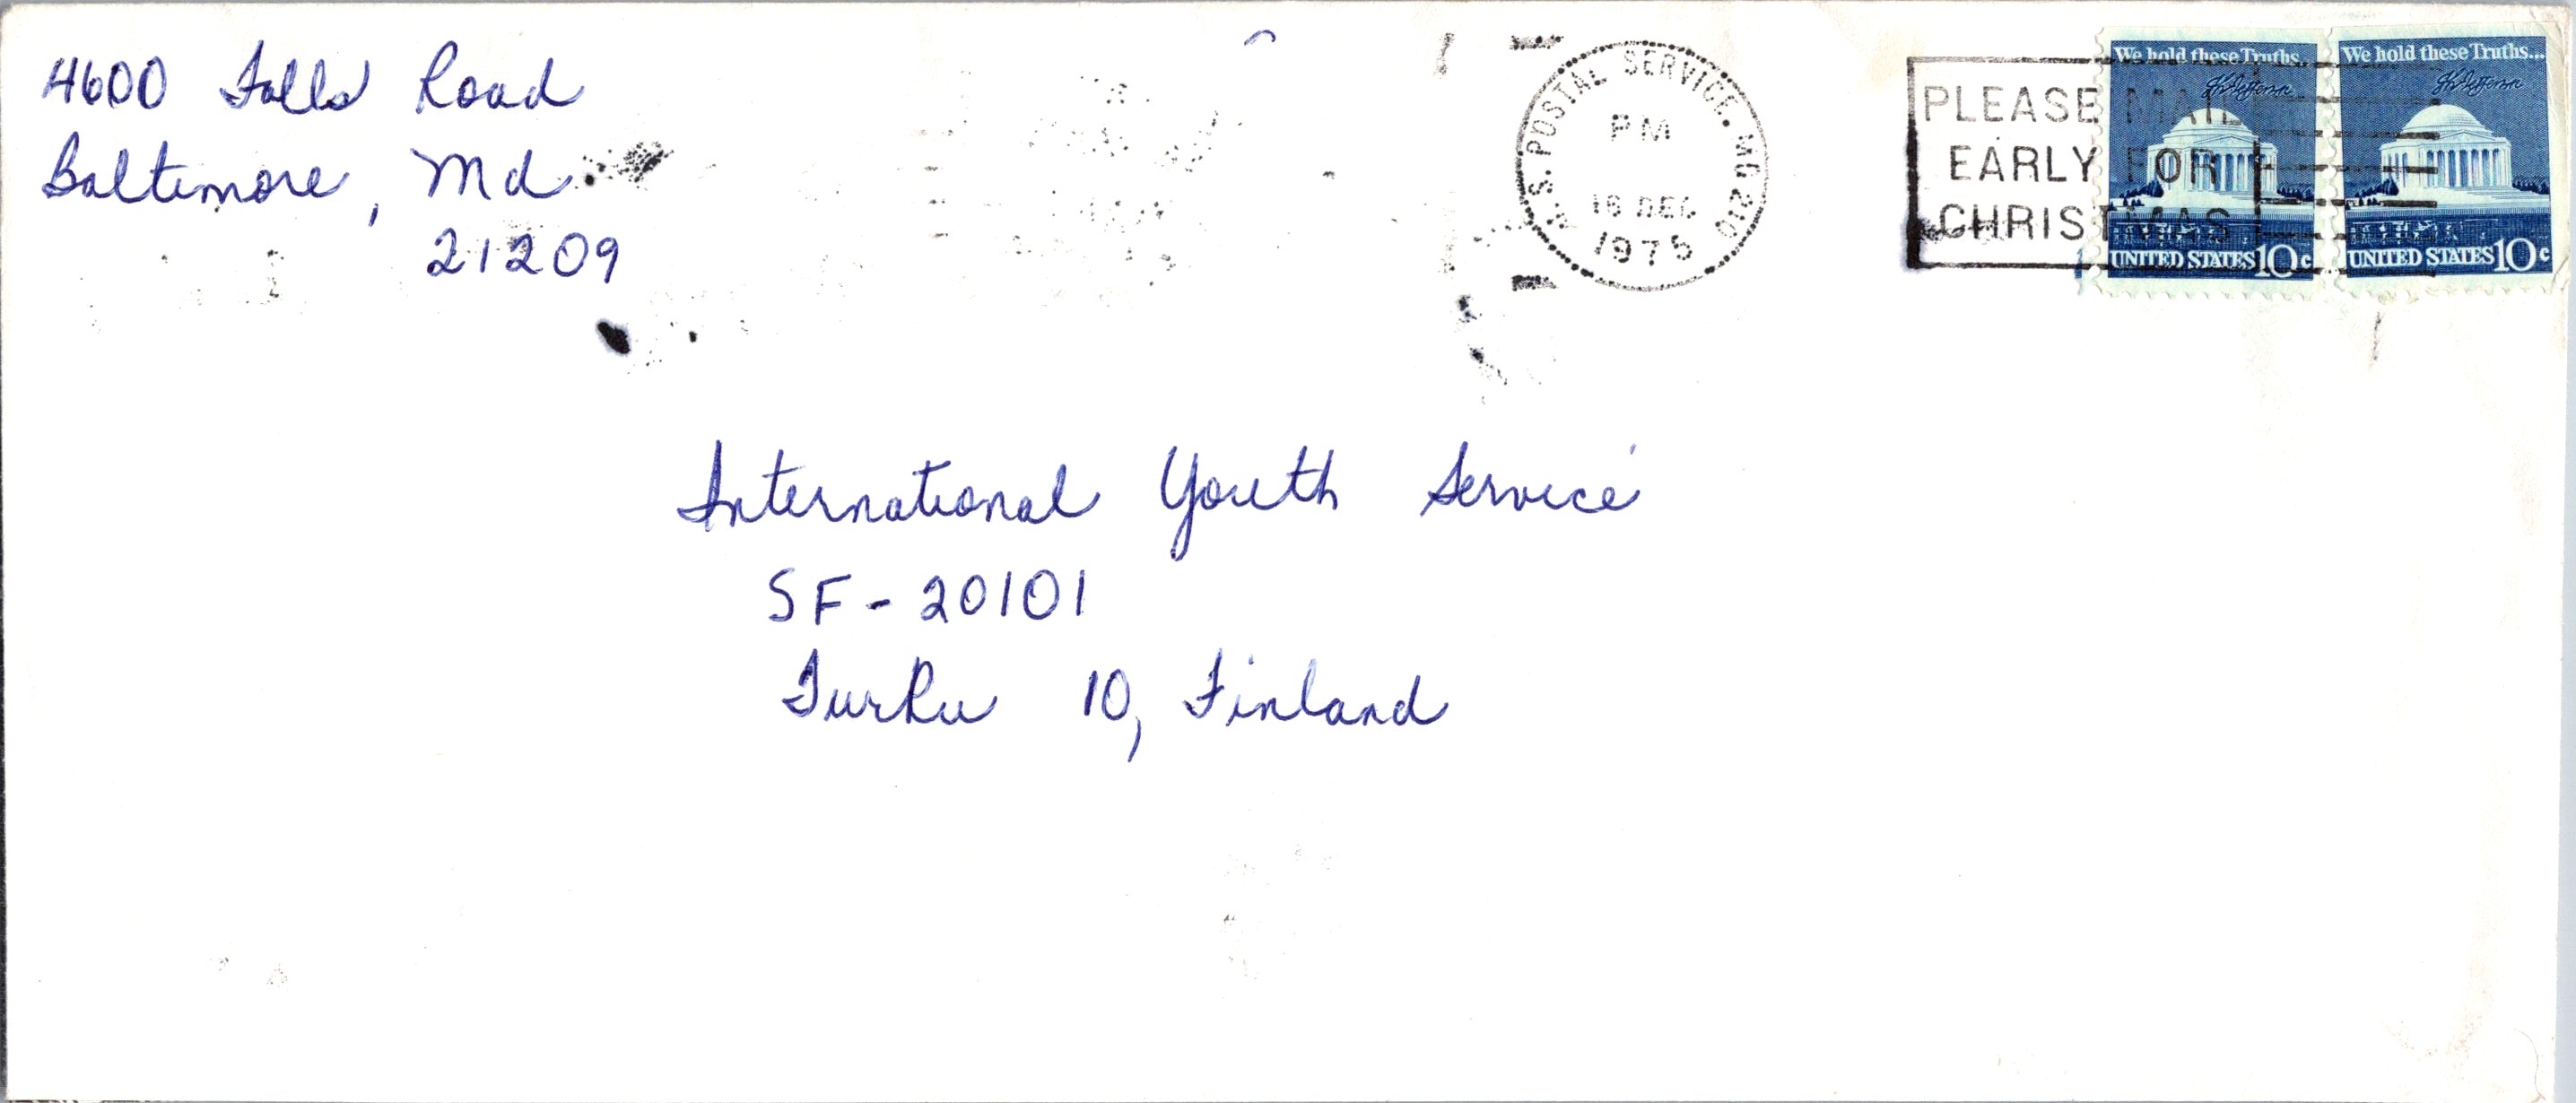 4600 Falls Road
Baltimore, Md
21209
U.S. POSTAL SERVICE. MD 210
PM
1975
PLEASE MAIL
EARLY FOR
CHRISTMAS
We hold these Truths...
Th Jefferson
UNITED STATES 10c
We hold these Truths...
Th Jefferson
UNITED STATES 10c
International Youth Service
SF - 20101
Turku 10, Finland